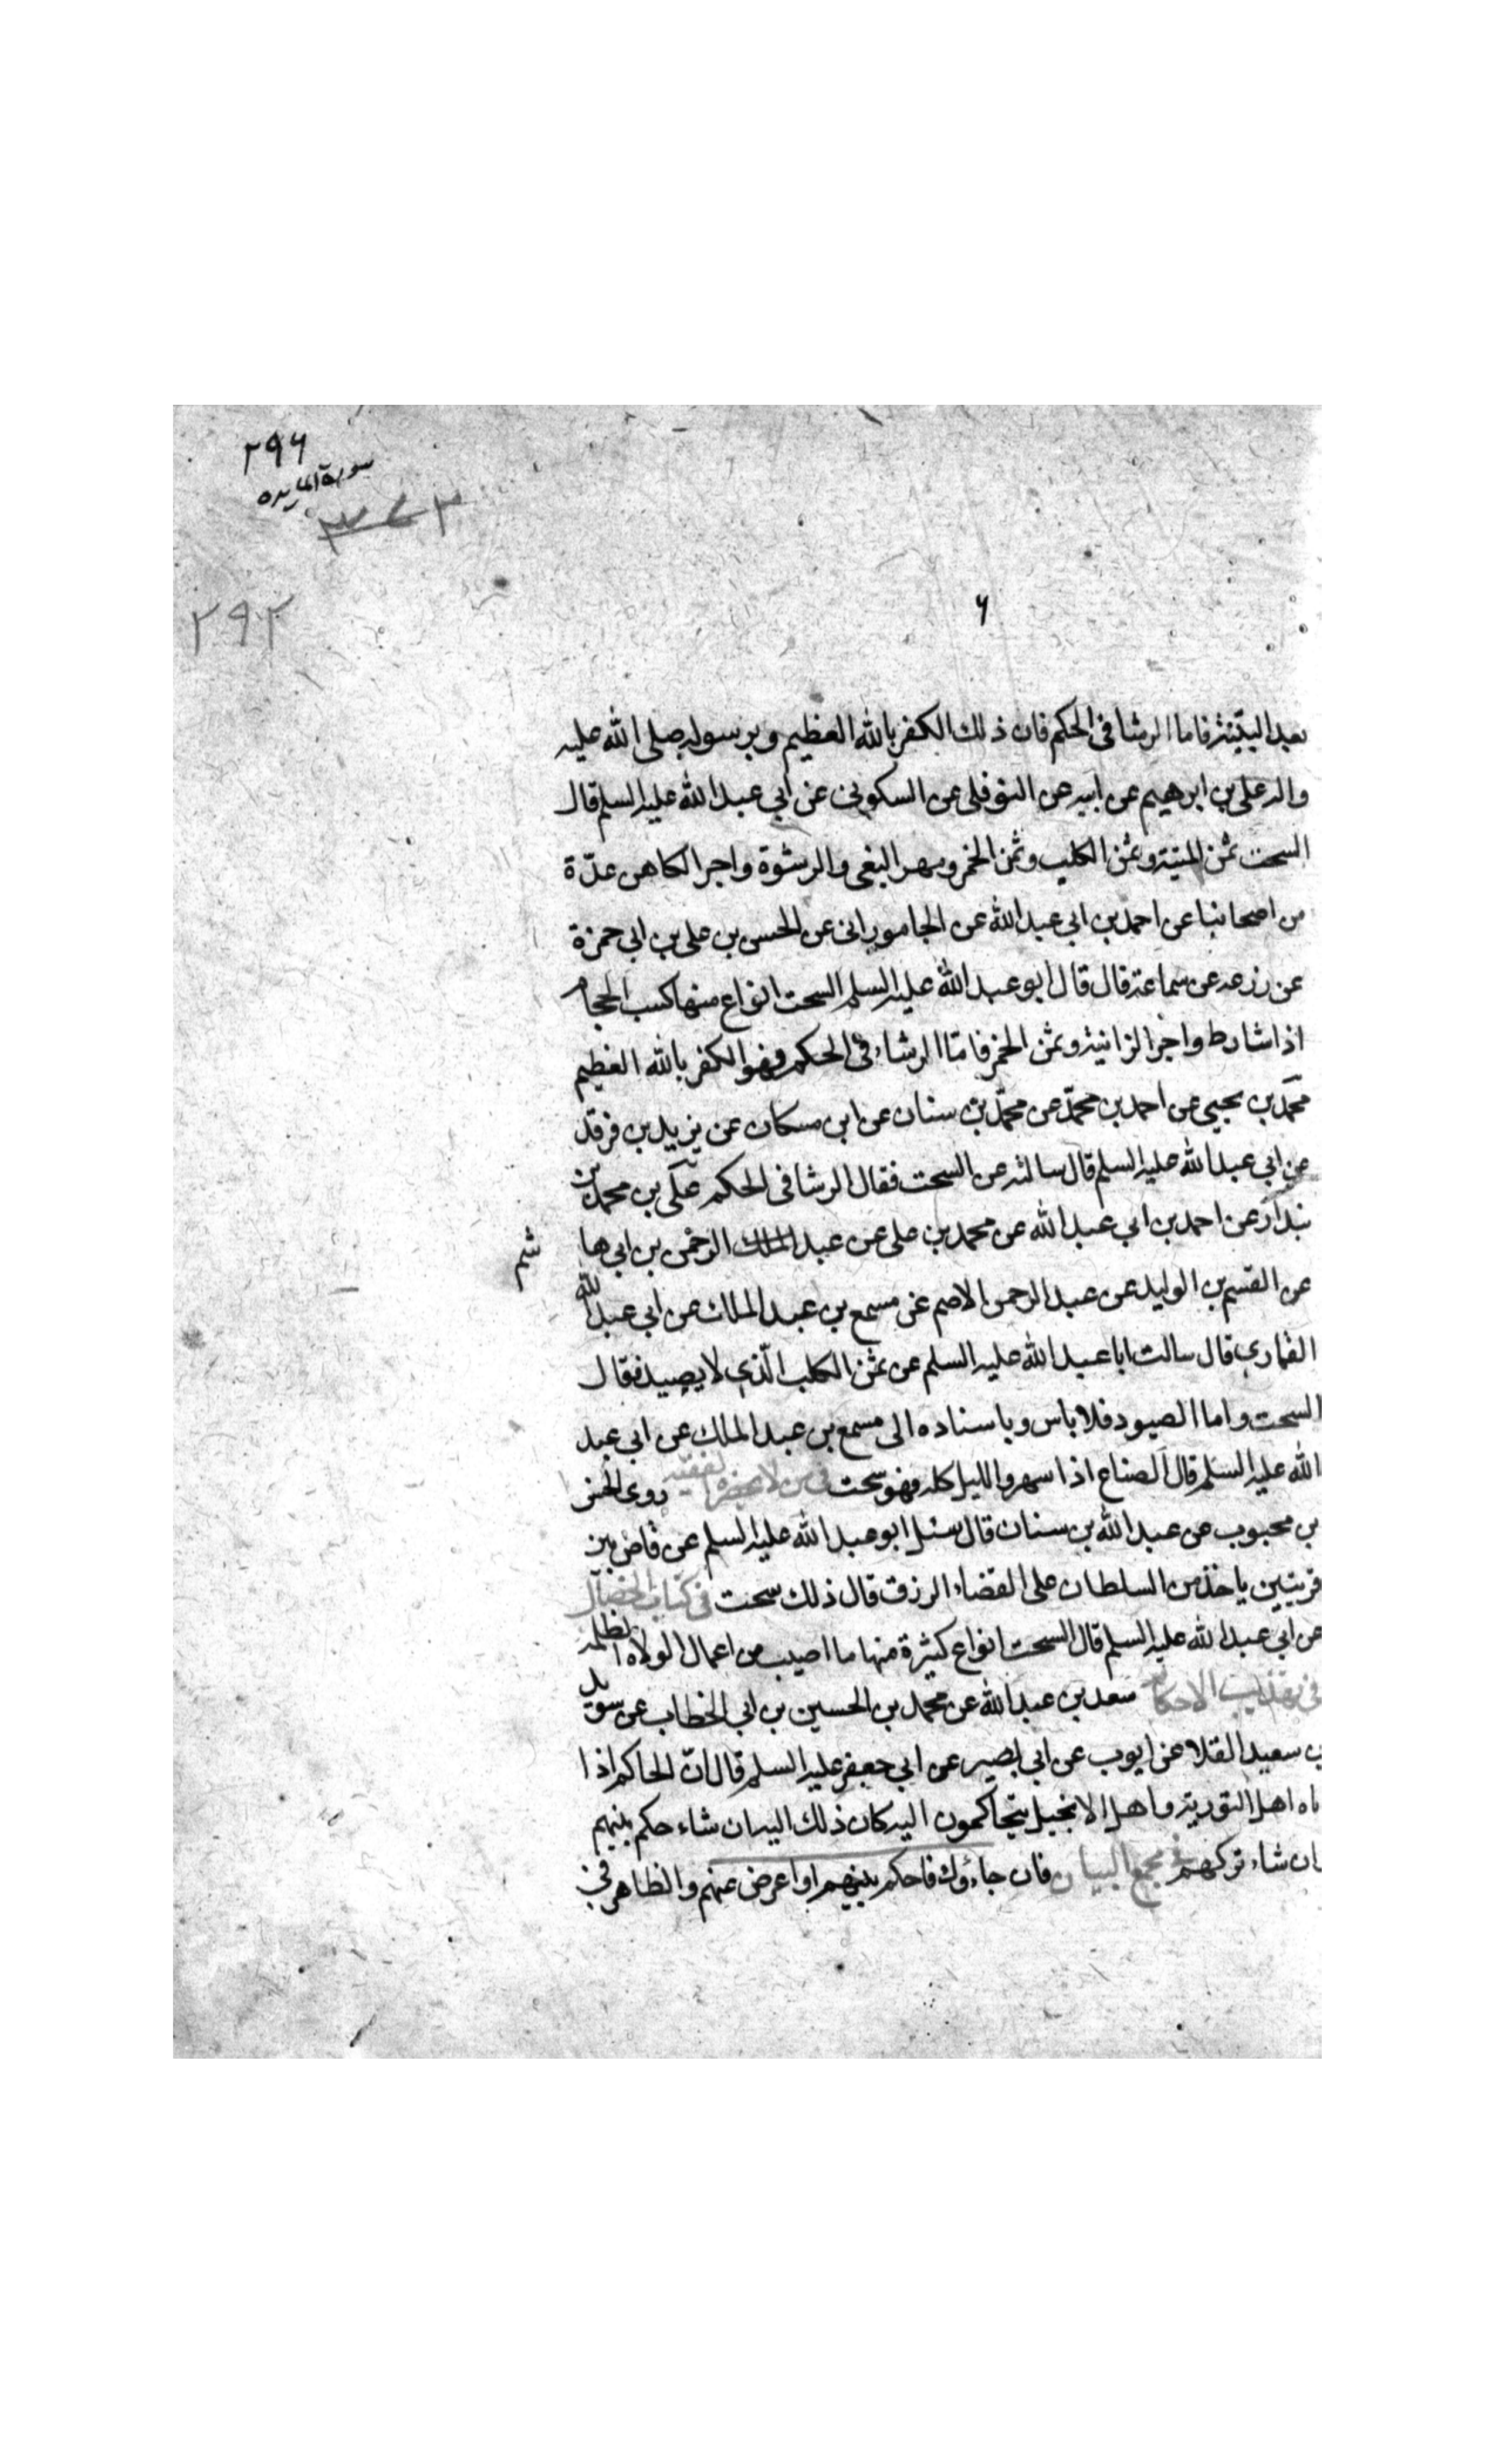 ٢٩٦
سورة المايده
٢٩٢
٦
بعد البينة فاما الرشا فى الحكم فان ذلك الكفر بالله العظيم وبرسوله صلى الله عليه
واله على بن ابرهيم عن ابيه عن النوفلى عن السكونى عن ابي عبد الله عليه السلم قال
السحت ثمن الميتة وثمن الكلب وثمن الخمر ومهر البغى والرشوة واجر الكاهن عدّة
من اصحابنا عن احمد بن ابي عبد الله عن الجامورانى عن الحسن بن على بن ابي حمزة
عن زرعه عن سماعة قال قال ابو عبد الله عليه السلم السحت انواع منها كسب الحجام
اذا شارط واجر الزانية وثمن الخمر فامّا الرشاء فى الحكم فهو الكفر بالله العظيم
محمّد بن يحيى عن احمد بن محمّد عن محمّد بن سنان عن ابن مسكان عن يزيد بن فرقد
عن ابي عبد الله عليه السلم قال سالته عن السحت فقال الرشا فى الحكم على بن محمد بن
بندار عن احمد بن ابي عبد الله عن محمد بن على عن عبد الملك الرحمن بن ابي ها
شم
عن القسم بن الوليد عن عبد الرحمن الاصم عن مسمع بن عبد الملك عن ابي عبد الله
القمارى قال سالت ابا عبد الله عليه السلم عن ثمن الكلب الّذى لا يصيد فقال
السحت واما الصيود فلا باس وباسناده الى مسمع بن عبد الملك عن ابي عبد
الله عليه السلم قال الصناع اذا سهروا الليل كله فهو سحت فى من لا يحضره الفقيه روى الحسن
بن محبوب عن عبد الله بن سنان قال سئل ابو عبد الله عليه السلم عن قاض بين
قريتين ياخذ من السلطان على القضاء الرزق قال ذلك سحت فى كتاب الخصال
عن ابي عبد الله عليه السلم قال السحت انواع كثيرة منها ما اصيب من اعمال الولاة الظلمة
فى تهذيب الاحكام سعد بن عبد الله عن محمد بن الحسين بن ابي الخطاب عن سويد
بن سعيد القلا عن ايوب عن ابي بصير عن ابي جعفر عليه السلم قال انّ الحاكم اذا
اه اهل التورية واهل الانجيل يتحاكمون اليه كان ذلك اليه ان شاء حكم بينهم
ان شاء تركهم فى مجمع البيان فان جاءوك فاحكم بينهم او اعرض عنهم والظاهر فى